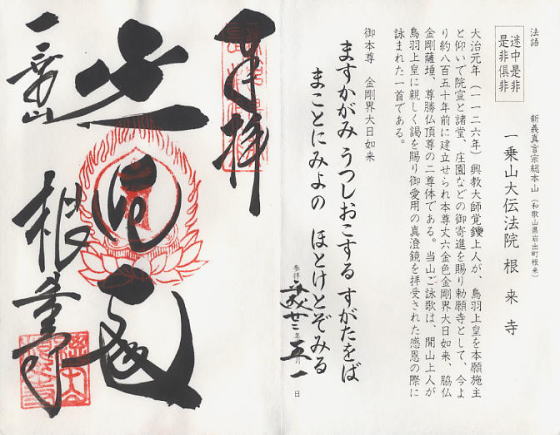 法語
迷中是非
是非倶非
新義真言宗総本山（和歌山県岩出町根来）
一乗山大伝法院 根来寺
大治元年（一一二六年）興教大師覚鑁上人が、鳥羽上皇を本願施主
と仰いで院宣と諸堂、庄園などの御寄進を賜り勅願寺として、今よ
り約八百五十年前に建立せられ本尊丈六金色金剛界大日如来、脇仏
金剛薩埵、尊勝仏頂尊の二尊体である。当山ご詠歌は、開山上人が
鳥羽上皇に親しく謁を賜り御愛用の真澄鏡を拝受された感恩の際に
詠まれた一首である。
御本尊 金剛界大日如来
ますかがみ うつしおこする すがたをば
まことにみよの ほとけとぞみる
五 一 日
奉拝
一乗山
根来寺